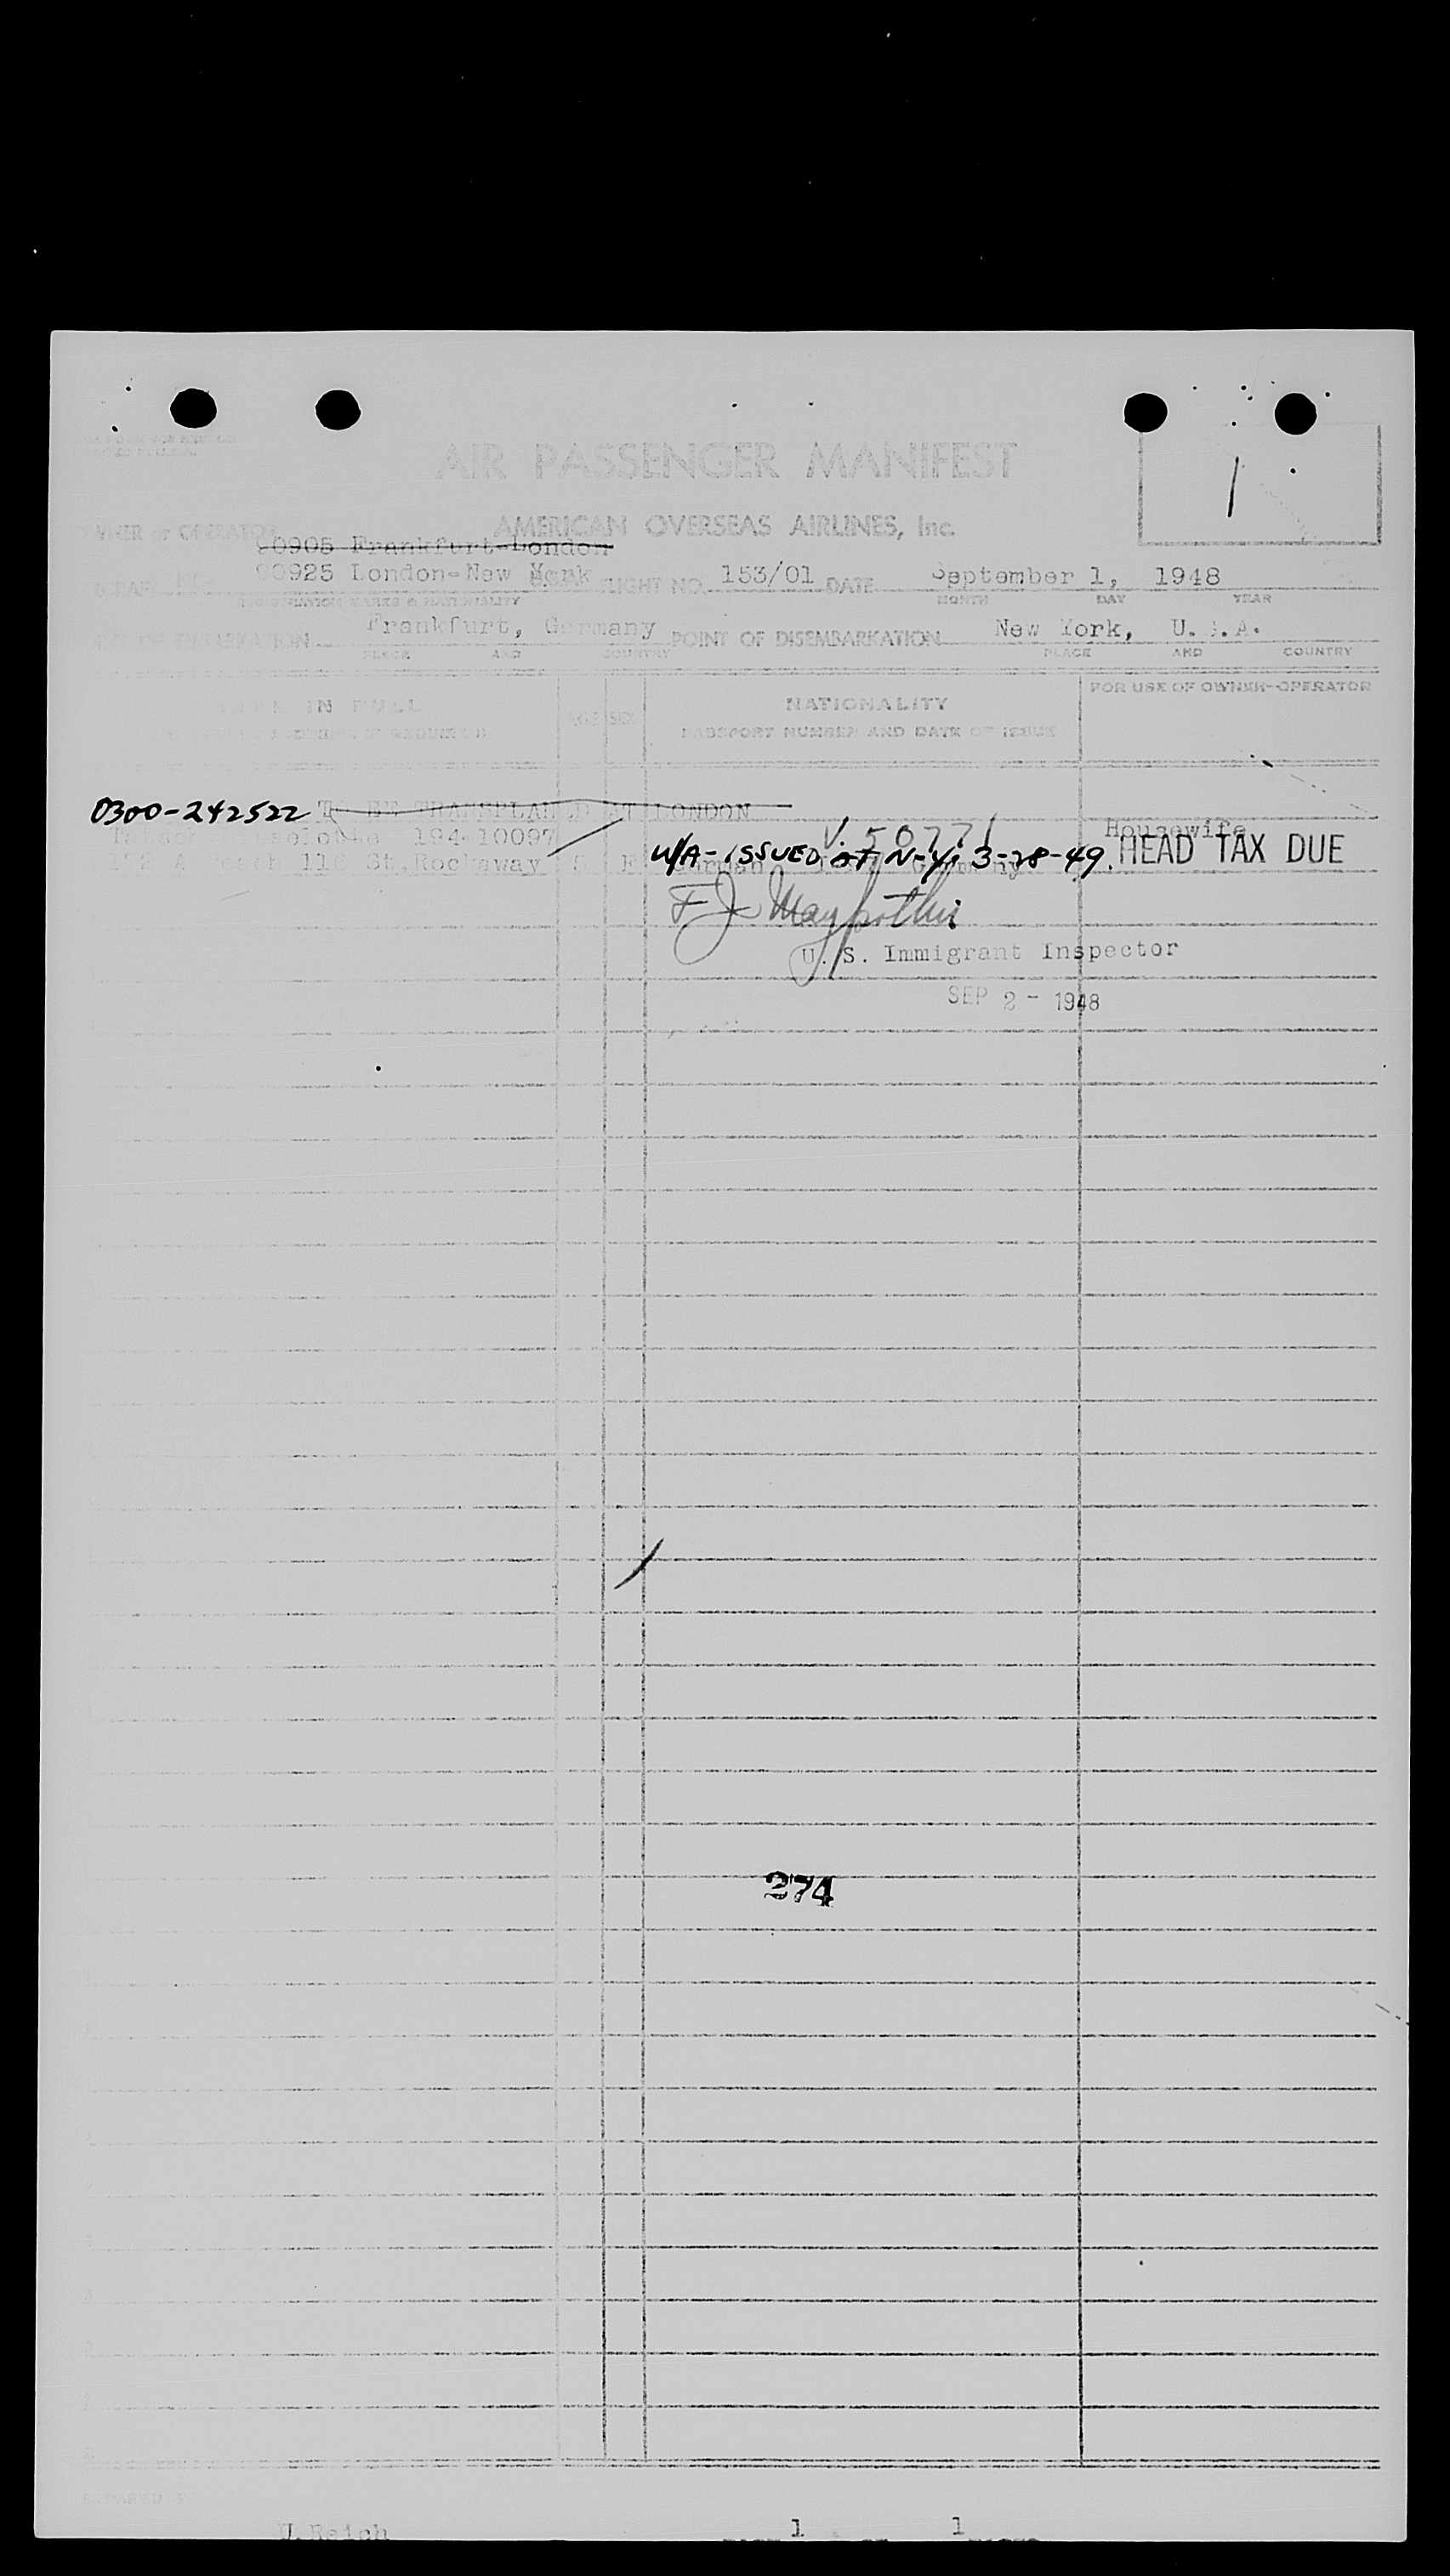 AIR PASSENGER MANIFEST
1
OWNER or OPERATOR AMERICAN OVERSEAS AIRLINES, Inc.
90905 Frankfurt-London
90925 London-New York FLIGHT NO. 153/01 DATE September 1, 1948
REGISTRATION MARKS & NATIONALITY MONTH DAY YEAR
POINT OF EMBARKATION Frankfurt, Germany POINT OF DISEMBARKATION New York, U.S.A.
PLACE AND COUNTRY PLACE AND COUNTRY
NAME IN FULL AGE SEX NATIONALITY FOR USE OF OWNER-OPERATOR
PASSPORT NUMBER AND DATE OF ISSUE
0300-242522 TO BE TRANSPLANED AT LONDON
194-10097 V. 50771 Housewife
Beach 11 St. Rockaway German Germany
W/A- ISSUED at N-Y, 3-28-49. HEAD TAX DUE
U. S. Immigrant Inspector
SEP 2 - 1948
274
PREPARED BY
U. Reich 1 1